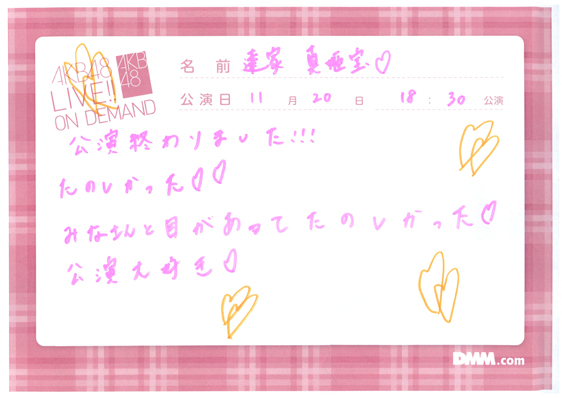 AKB48
LIVE!!
ON DEMAND
AKB
48
名前 達家 真姫宝♡
公演日 11月20日 18:30公演
公演終わりました!!!
たのしかった♡♡
みなさんと目があってたのしかった♡
公演大好き♡
DMM.com